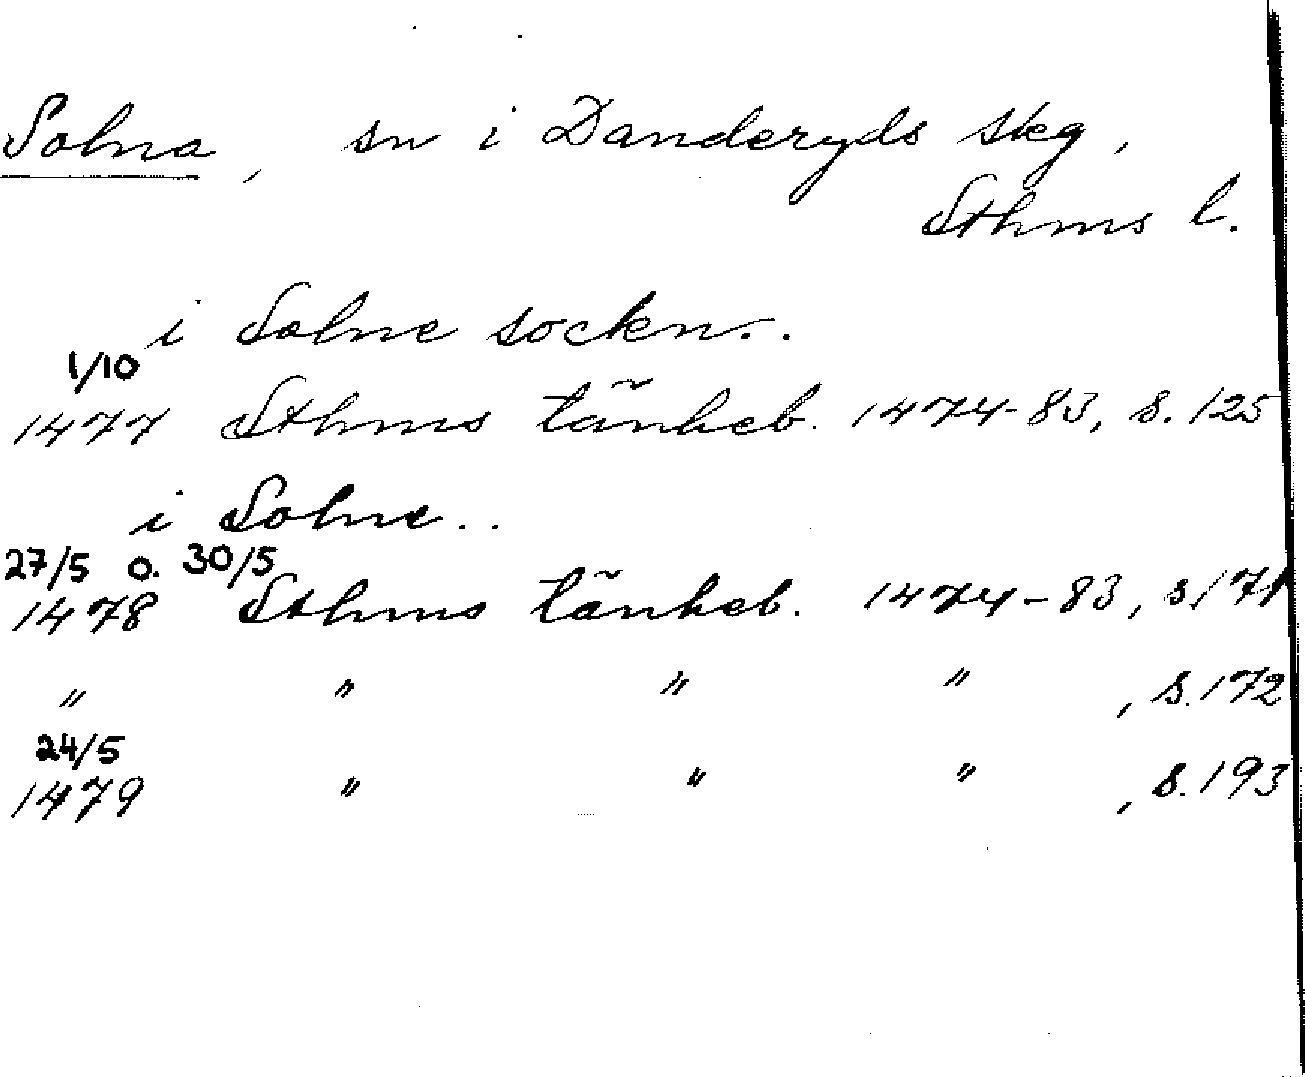 Solna, sn i Danderyds skg,
Sthms l.
i Solne sockn..
1/10
1477 Sthms tänkeb. 1474-83, s. 125
i Solne..
27/5 o. 30/5
1478 Sthms tänkeb. 1474-83, s 171
" " " " , s. 172
24/5
1479 " " " , s. 193